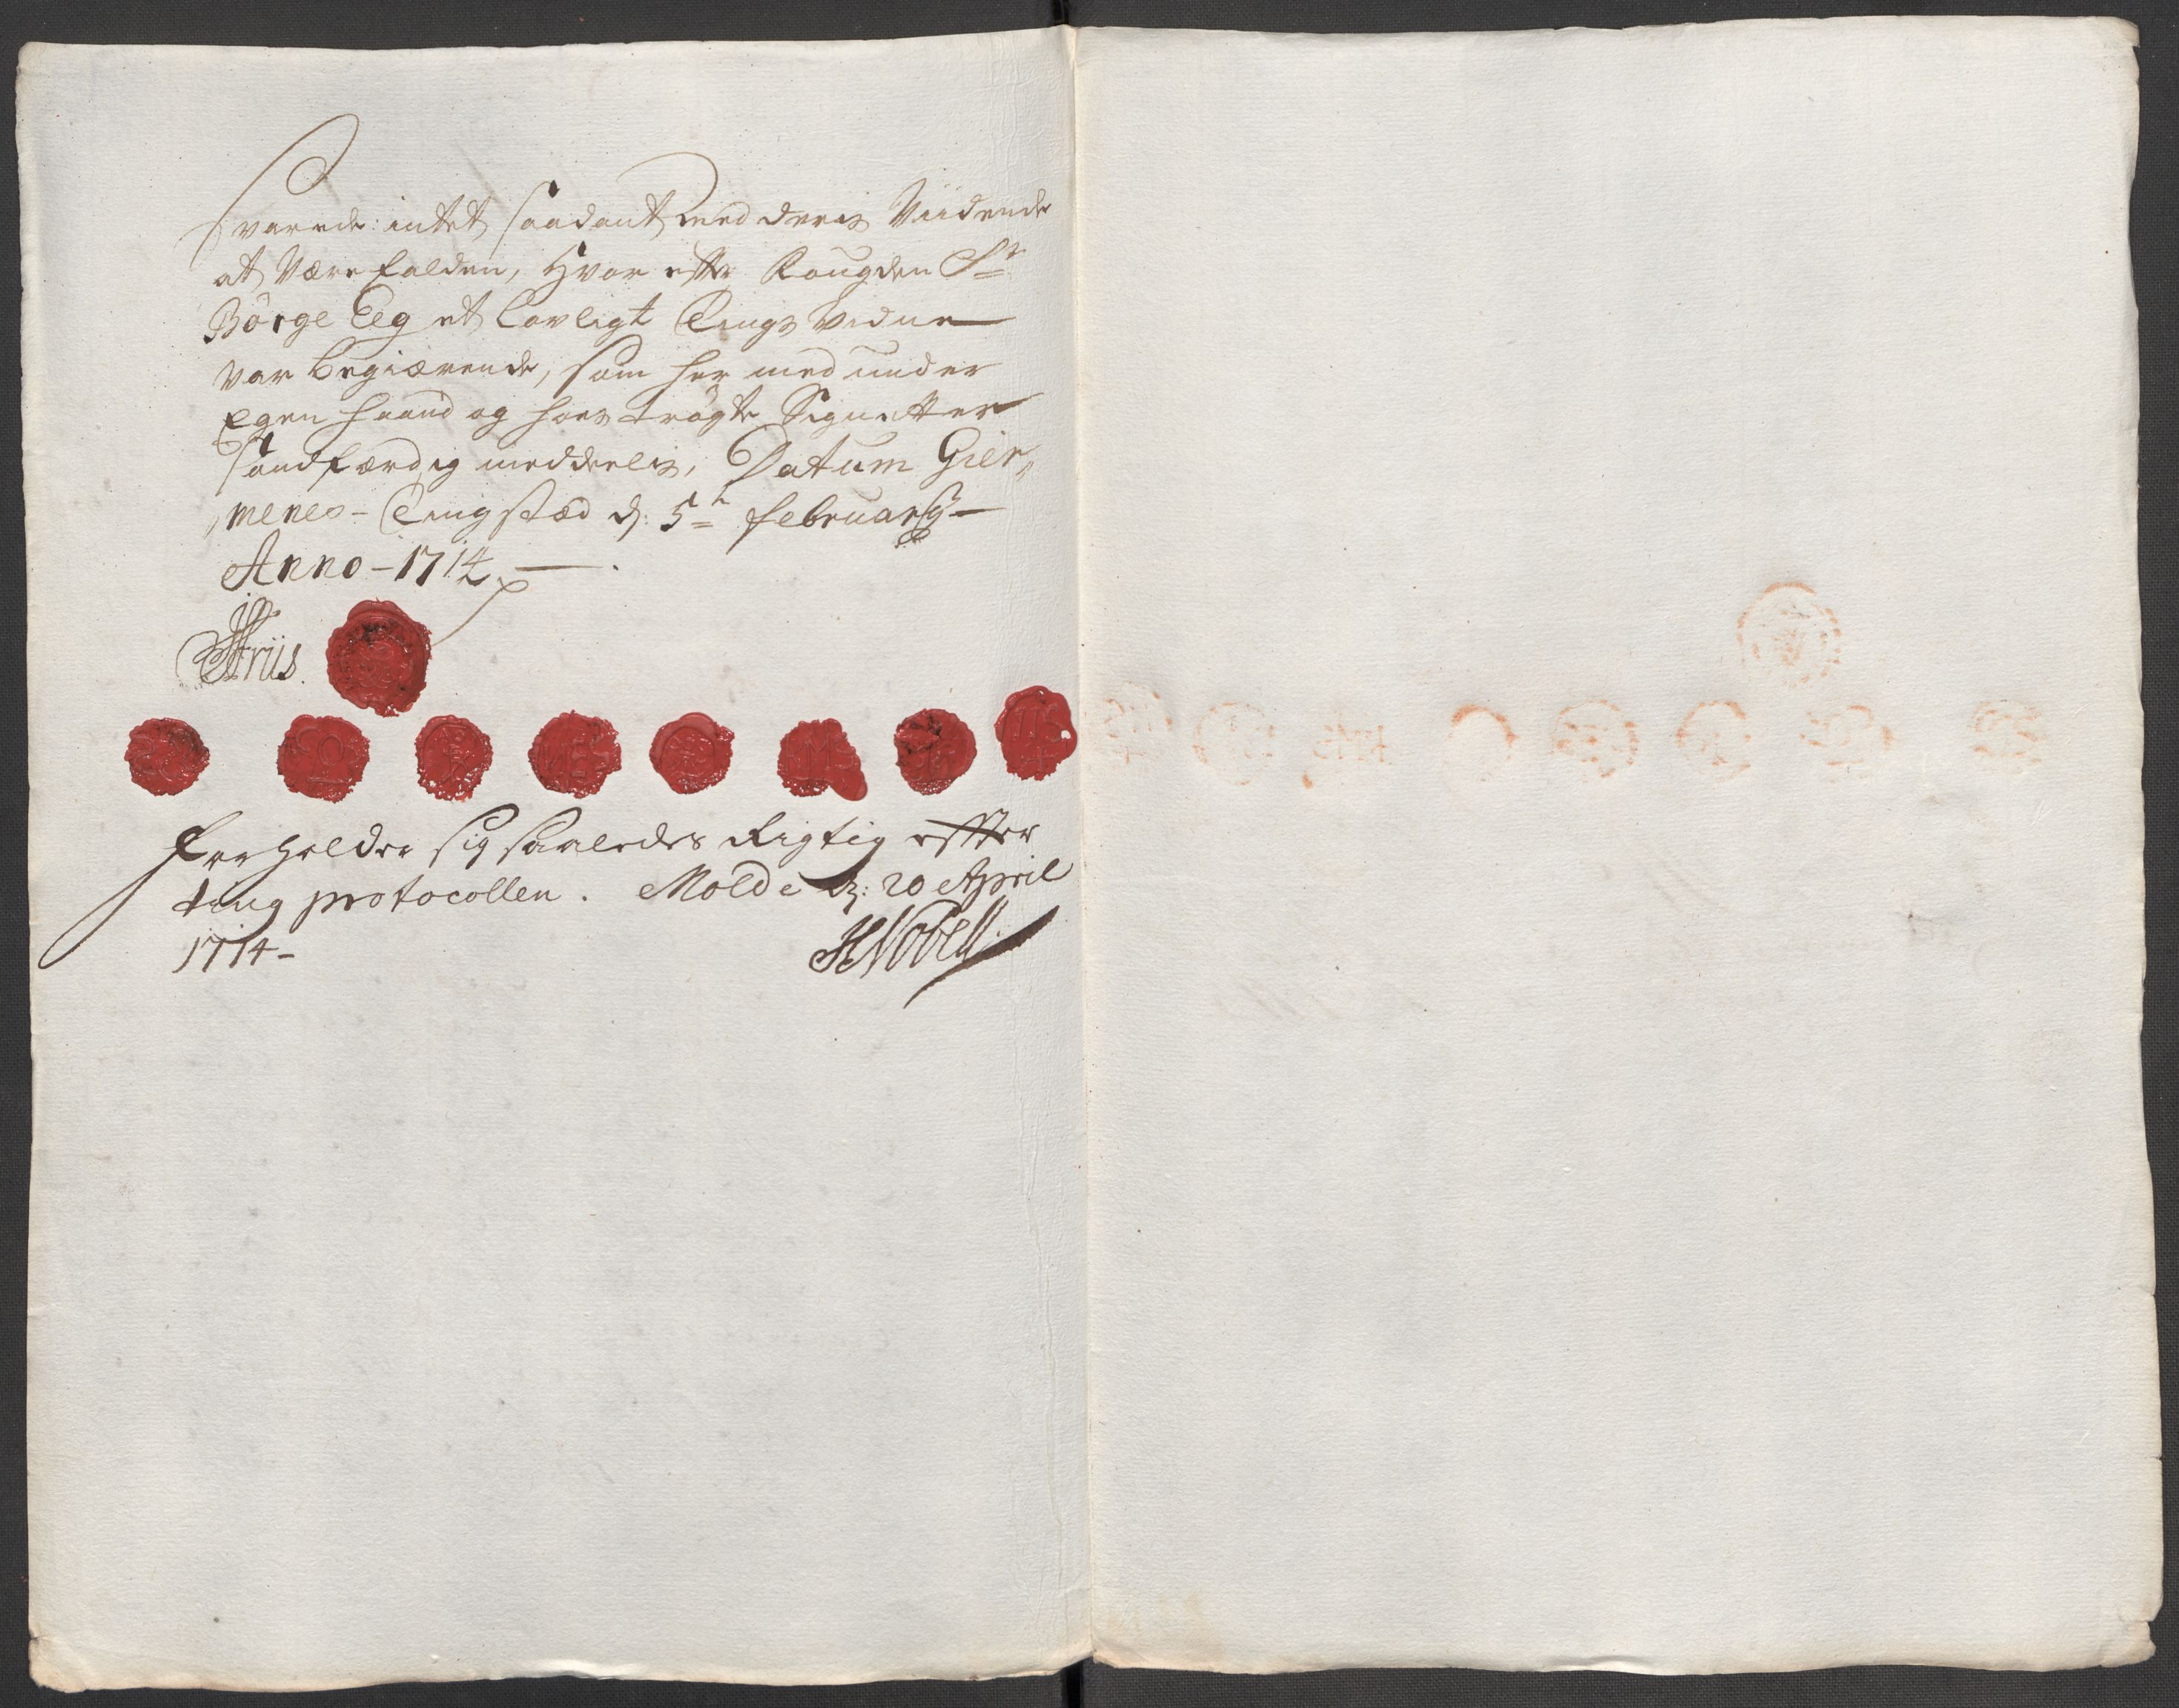 Svarede: intet saadant med deris Viidende
at være falden, hvor efter Fougden Sr
Börge Eeg et lovligt Tings vidne
var begiærende, som her med under
Egen haand og hoes trögte Signetter
sandfærdig meddeelis, Datum Gier,,
,,menes-Tingstæd d: 5te februarij
Anno-1714
Friis
forholder sig saaledes Rigtig effter
ting protocollen. Molde d: 20 April
1714-
HNobell